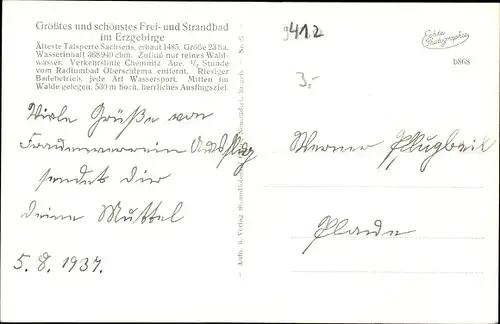 Größtes und schönstes Frei- und Strandbad
im Erzgebirge
Älteste Talsperre Sachsens, erbaut 1485. Größe 23 ha.
Wasserinhalt 368940 cbm. Zufluß nur reines Wald-
wasser. Verkehrslinie Chemnitz Aue. 1/2 Stunde
vom Radiumbad Oberschlema entfernt. Riesiger
Badebetrieb, jede Art Wassersport. Mitten im
Walde gelegen. 530 m hoch, herrliches Ausflugsziel.
Viele Grüße von
Frauenverein Ausflug
sendet dir
deine Muttel
5.8.1937.
Aufn. u. Verlag
9412
3,-
Echte
Photographie
b868
Werner Pflugbeil
Plaue